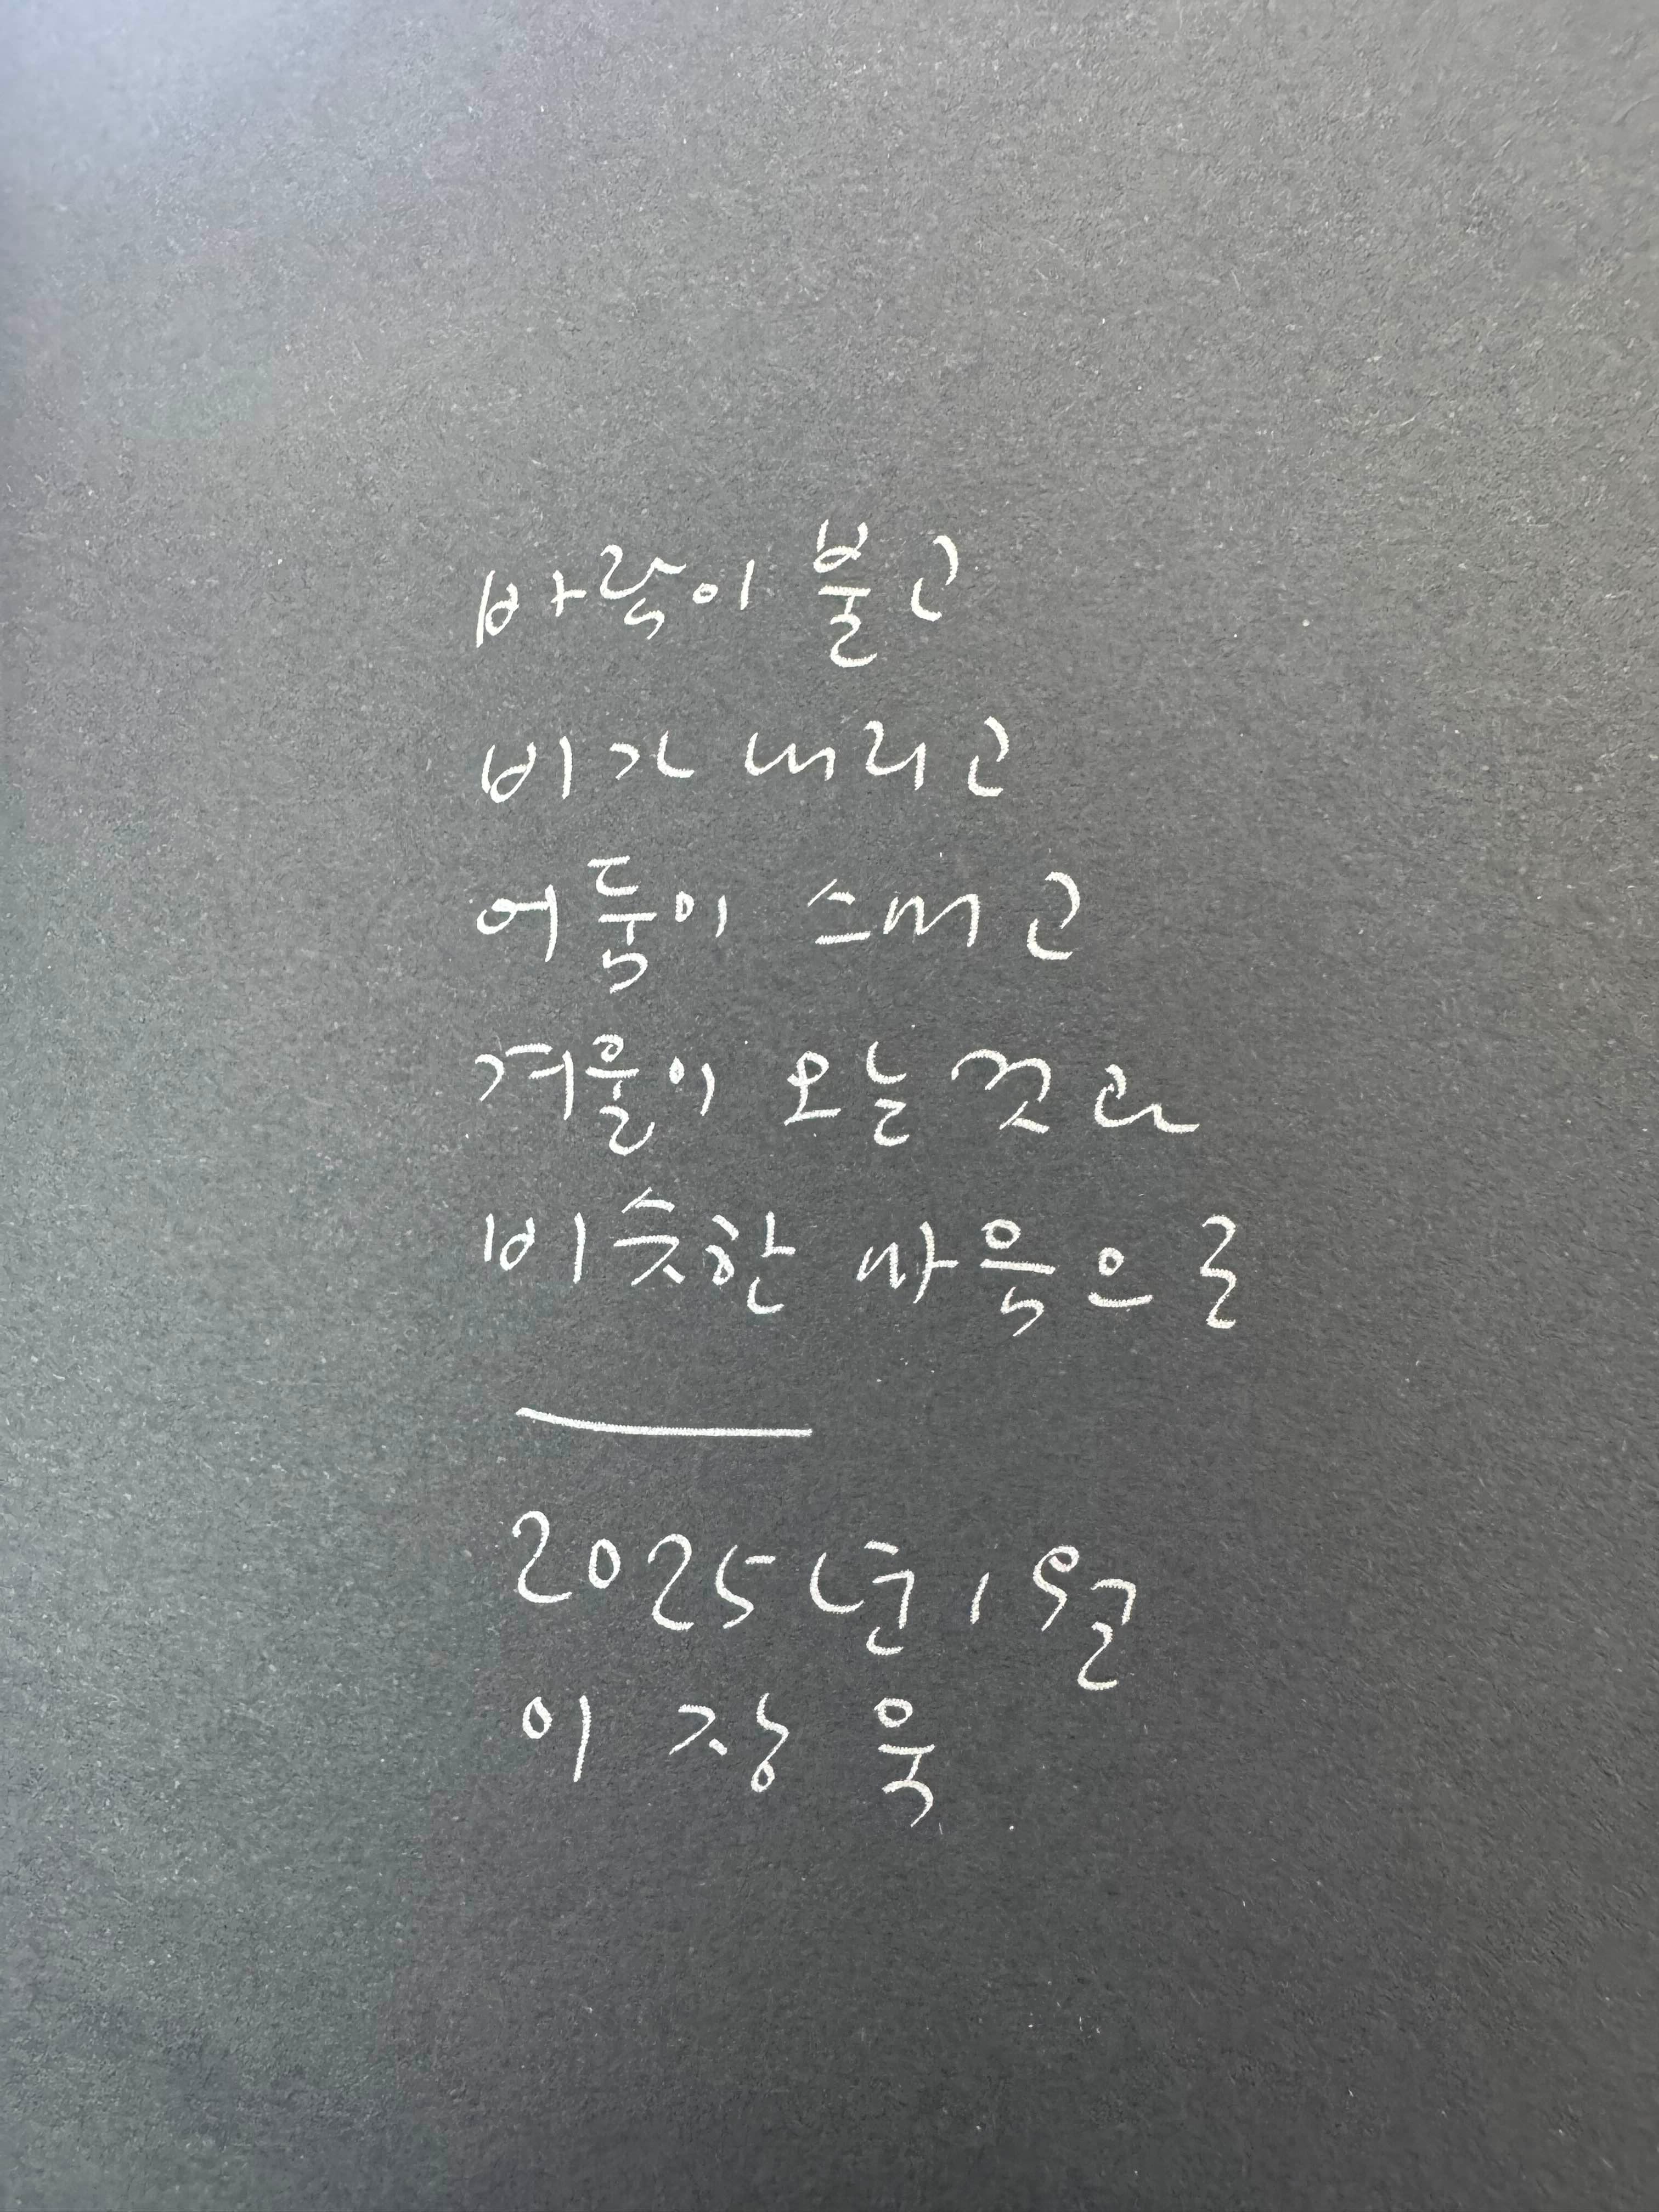 바람이 불고
비가 내리고
어둠이 스미고
겨울이 오는 것과
비슷한 마음으로
2025년 1월
이장욱